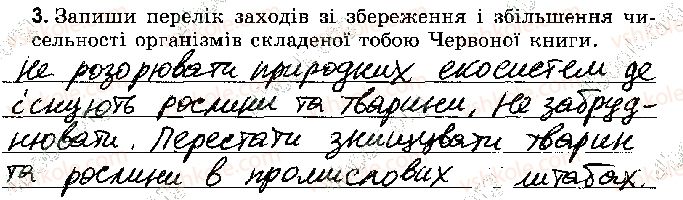 3. Запиши перелік заходів зі збереження і збільшення чи-
сельності організмів складеної тобою Червоної книги.
Не розорювати природних екосистем де
існують рослини та тварини. Не забруд-
нювати. Перестати знищувати тварин
та рослини в промислових штабах.